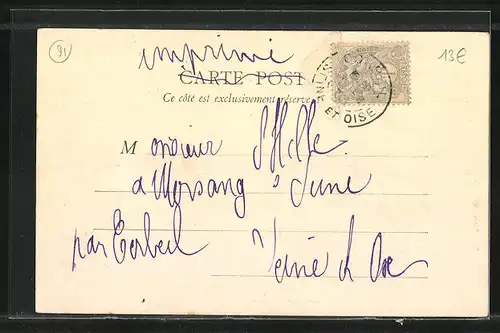 91
13€
imprimé
CARTE POST
Ce côté est exclusivement réservé
CORBEIL
ET OISE
Monsieur
à Morsang s/ Seine
par Corbeil Seine & Oise